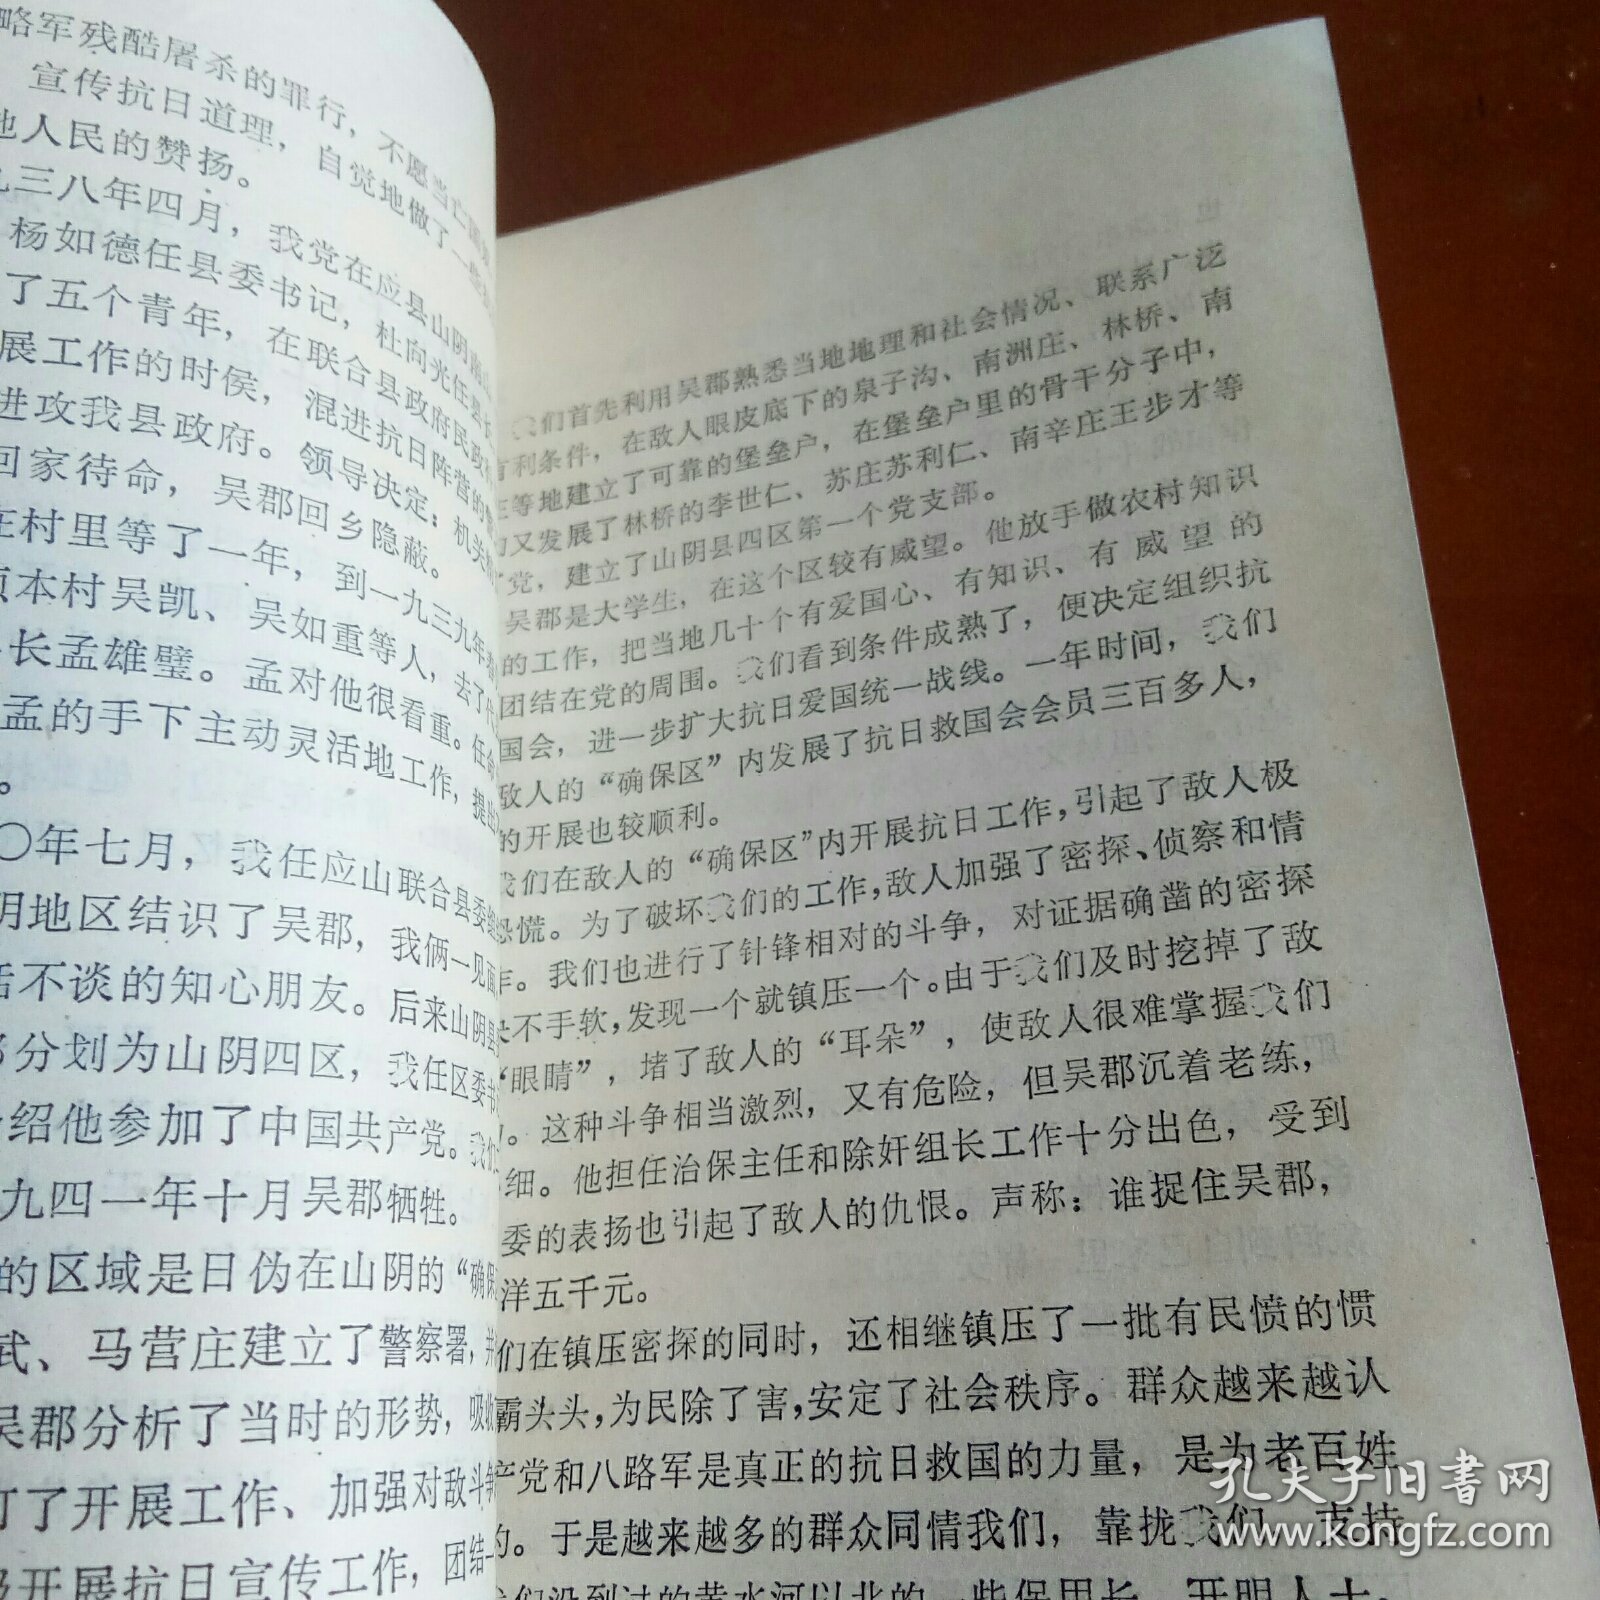 略军残酷屠杀的罪行，不愿当亡国
宣传抗日道理，自觉地做了一些
地人民的赞扬。
九三八年四月，我党在应县山阴
杨如德任县委书记，杜向光任县长
了五个青年，在联合县政府民政
展工作的时侯，混进抗日阵营的
进攻我县政府。领导决定：机关
回家待命，吴郡回乡隐蔽。
在村里等了一年，到一九三九年
本村吴凯、吴如重等人，去了
长孟雄璧。孟对他很看重。任命
孟的手下主动灵活地工作，提
。
〇年七月，我任应山联合县委
阴地区结识了吴郡，我俩一见面
话不谈的知心朋友。后来山阴县
部分划为山阴四区，我任区委书
介绍他参加了中国共产党。我们
九四一年十月吴郡牺牲。
的区域是日伪在山阴的“确保
武、马营庄建立了警察署，并
吴郡分析了当时的形势，吸收
订了开展工作、加强对敌斗争
极开展抗日宣传工作，团结一
我们首先利用吴郡熟悉当地地理和社会情况、联系广泛
有利条件，在敌人眼皮底下的泉子沟、南洲庄、林桥、南
庄等地建立了可靠的堡垒户，在堡垒户里的骨干分子中，
又发展了林桥的李世仁、苏庄苏利仁、南辛庄王步才等
党，建立了山阴县四区第一个党支部。
吴郡是大学生，在这个区较有威望。他放手做农村知识
的工作，把当地几十个有爱国心、有知识、有威望的
团结在党的周围。我们看到条件成熟了，便决定组织抗
国会，进一步扩大抗日爱国统一战线。一年时间，我们
敌人的“确保区”内发展了抗日救国会会员三百多人，
的开展也较顺利。
我们在敌人的“确保区”内开展抗日工作，引起了敌人极
恐慌。为了破坏我们的工作，敌人加强了密探、侦察和情
作。我们也进行了针锋相对的斗争，对证据确凿的密探
决不手软，发现一个就镇压一个。由于我们及时挖掉了敌
“眼睛”，堵了敌人的“耳朵”，使敌人很难掌握我们
。这种斗争相当激烈，又有危险，但吴郡沉着老练，
细。他担任治保主任和除奸组长工作十分出色，受到
委的表扬也引起了敌人的仇恨。声称：谁捉住吴郡，
洋五千元。
们在镇压密探的同时，还相继镇压了一批有民愤的惯
霸头头，为民除了害，安定了社会秩序。群众越来越认
产党和八路军是真正的抗日救国的力量，是为老百姓
的。于是越来越多的群众同情我们，靠拢我们，支持
我们没到过的黄水河以北的一些保甲长、开明人士、
孔夫子旧書网
www.kongfz.com